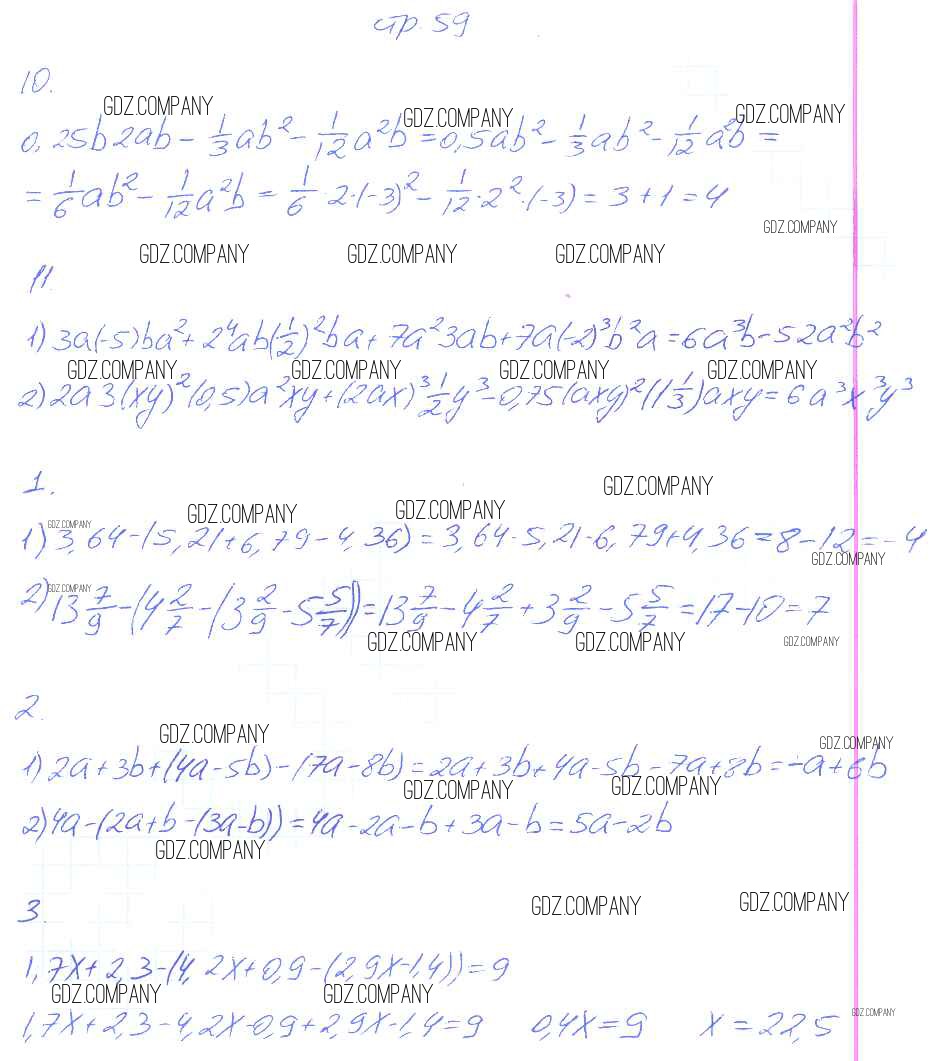 стр. 59
10.
GDZ.COMPANY GDZ.COMPANY GDZ.COMPANY
0,25b2ab - 1/3 ab² - 1/12 a²b = 0,5ab² - 1/3 ab² - 1/12 a²b =
= 1/6 ab² - 1/12 a²b = 1/6 · 2·(-3)² - 1/12 · 2² · (-3) = 3 + 1 = 4
GDZ.COMPANY
GDZ.COMPANY GDZ.COMPANY GDZ.COMPANY
11.
1) 3a(-5)ba² + 2⁴ab(-1/2)²ba + 7a²3ab + 7a(-2)³b²a = 6a³b - 52a²b²
GDZ.COMPANY GDZ.COMPANY GDZ.COMPANY GDZ.COMPANY
2) 2a3(xy)²(0,5)a²xy + (2ax)³ 1/2 y³ - 0,75(axy)²(1 1/3)axy = 6a³x³y³
1.
GDZ.COMPANY GDZ.COMPANY GDZ.COMPANY
GDZ.COMPANY
1) 3,64 - (5,21 + 6,79 - 4,36) = 3,64 - 5,21 - 6,79 + 4,36 = 8 - 12 = -4
GDZ.COMPANY
GDZ.COMPANY
2) 13 7/9 - (4 2/7 - (3 2/9 - 5 5/7)) = 13 7/9 - 4 2/7 + 3 2/9 - 5 5/7 = 17 - 10 = 7
GDZ.COMPANY GDZ.COMPANY GDZ.COMPANY
2.
GDZ.COMPANY GDZ.COMPANY
1) 2a + 3b + (4a - 5b) - (7a - 8b) = 2a + 3b + 4a - 5b - 7a + 8b = -a + 6b
GDZ.COMPANY GDZ.COMPANY
2) 4a - (2a + b - (3a - b)) = 4a - 2a - b + 3a - b = 5a - 2b
GDZ.COMPANY
3.
GDZ.COMPANY GDZ.COMPANY
1,7x + 2,3 - (4,2x + 0,9 - (2,9x - 1,4)) = 9
GDZ.COMPANY GDZ.COMPANY GDZ.COMPANY
1,7x + 2,3 - 4,2x - 0,9 + 2,9x - 1,4 = 9 0,4x = 9 x = 22,5